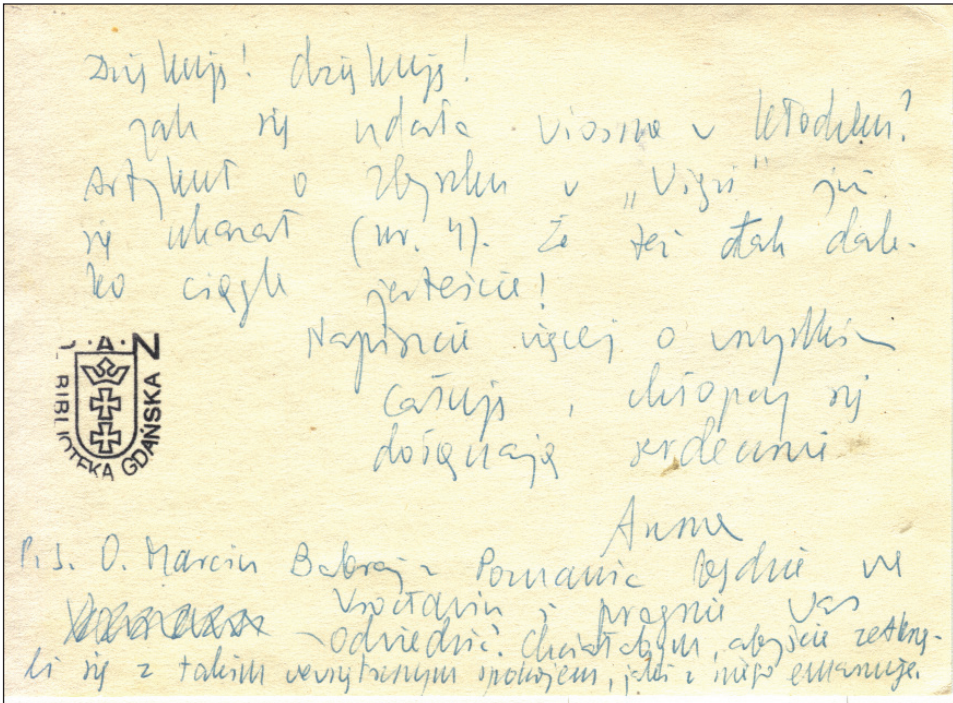 Dziękuję! dziękuję!
Jak się udała wiosna w Kłodzku?
Artykuł o Zbyszku w „Więzi" już
się ukazał (nr. 4). Że też tak dale-
ko ciągle jesteście!
Napiszcie więcej o wszystkim
Całuję, chłopcy się
dołączają serdecznie
Anna
P.S. O. Marcin Babraj z Poznania będzie we
Wrocławiu i pragnie Was
odwiedzić. Chciałabym, abyście zetknę-
li się z takim wewnętrznym spokojem, jaki z niego emanuje.
P.A.N
BIBLIOTEKA GDAŃSKA